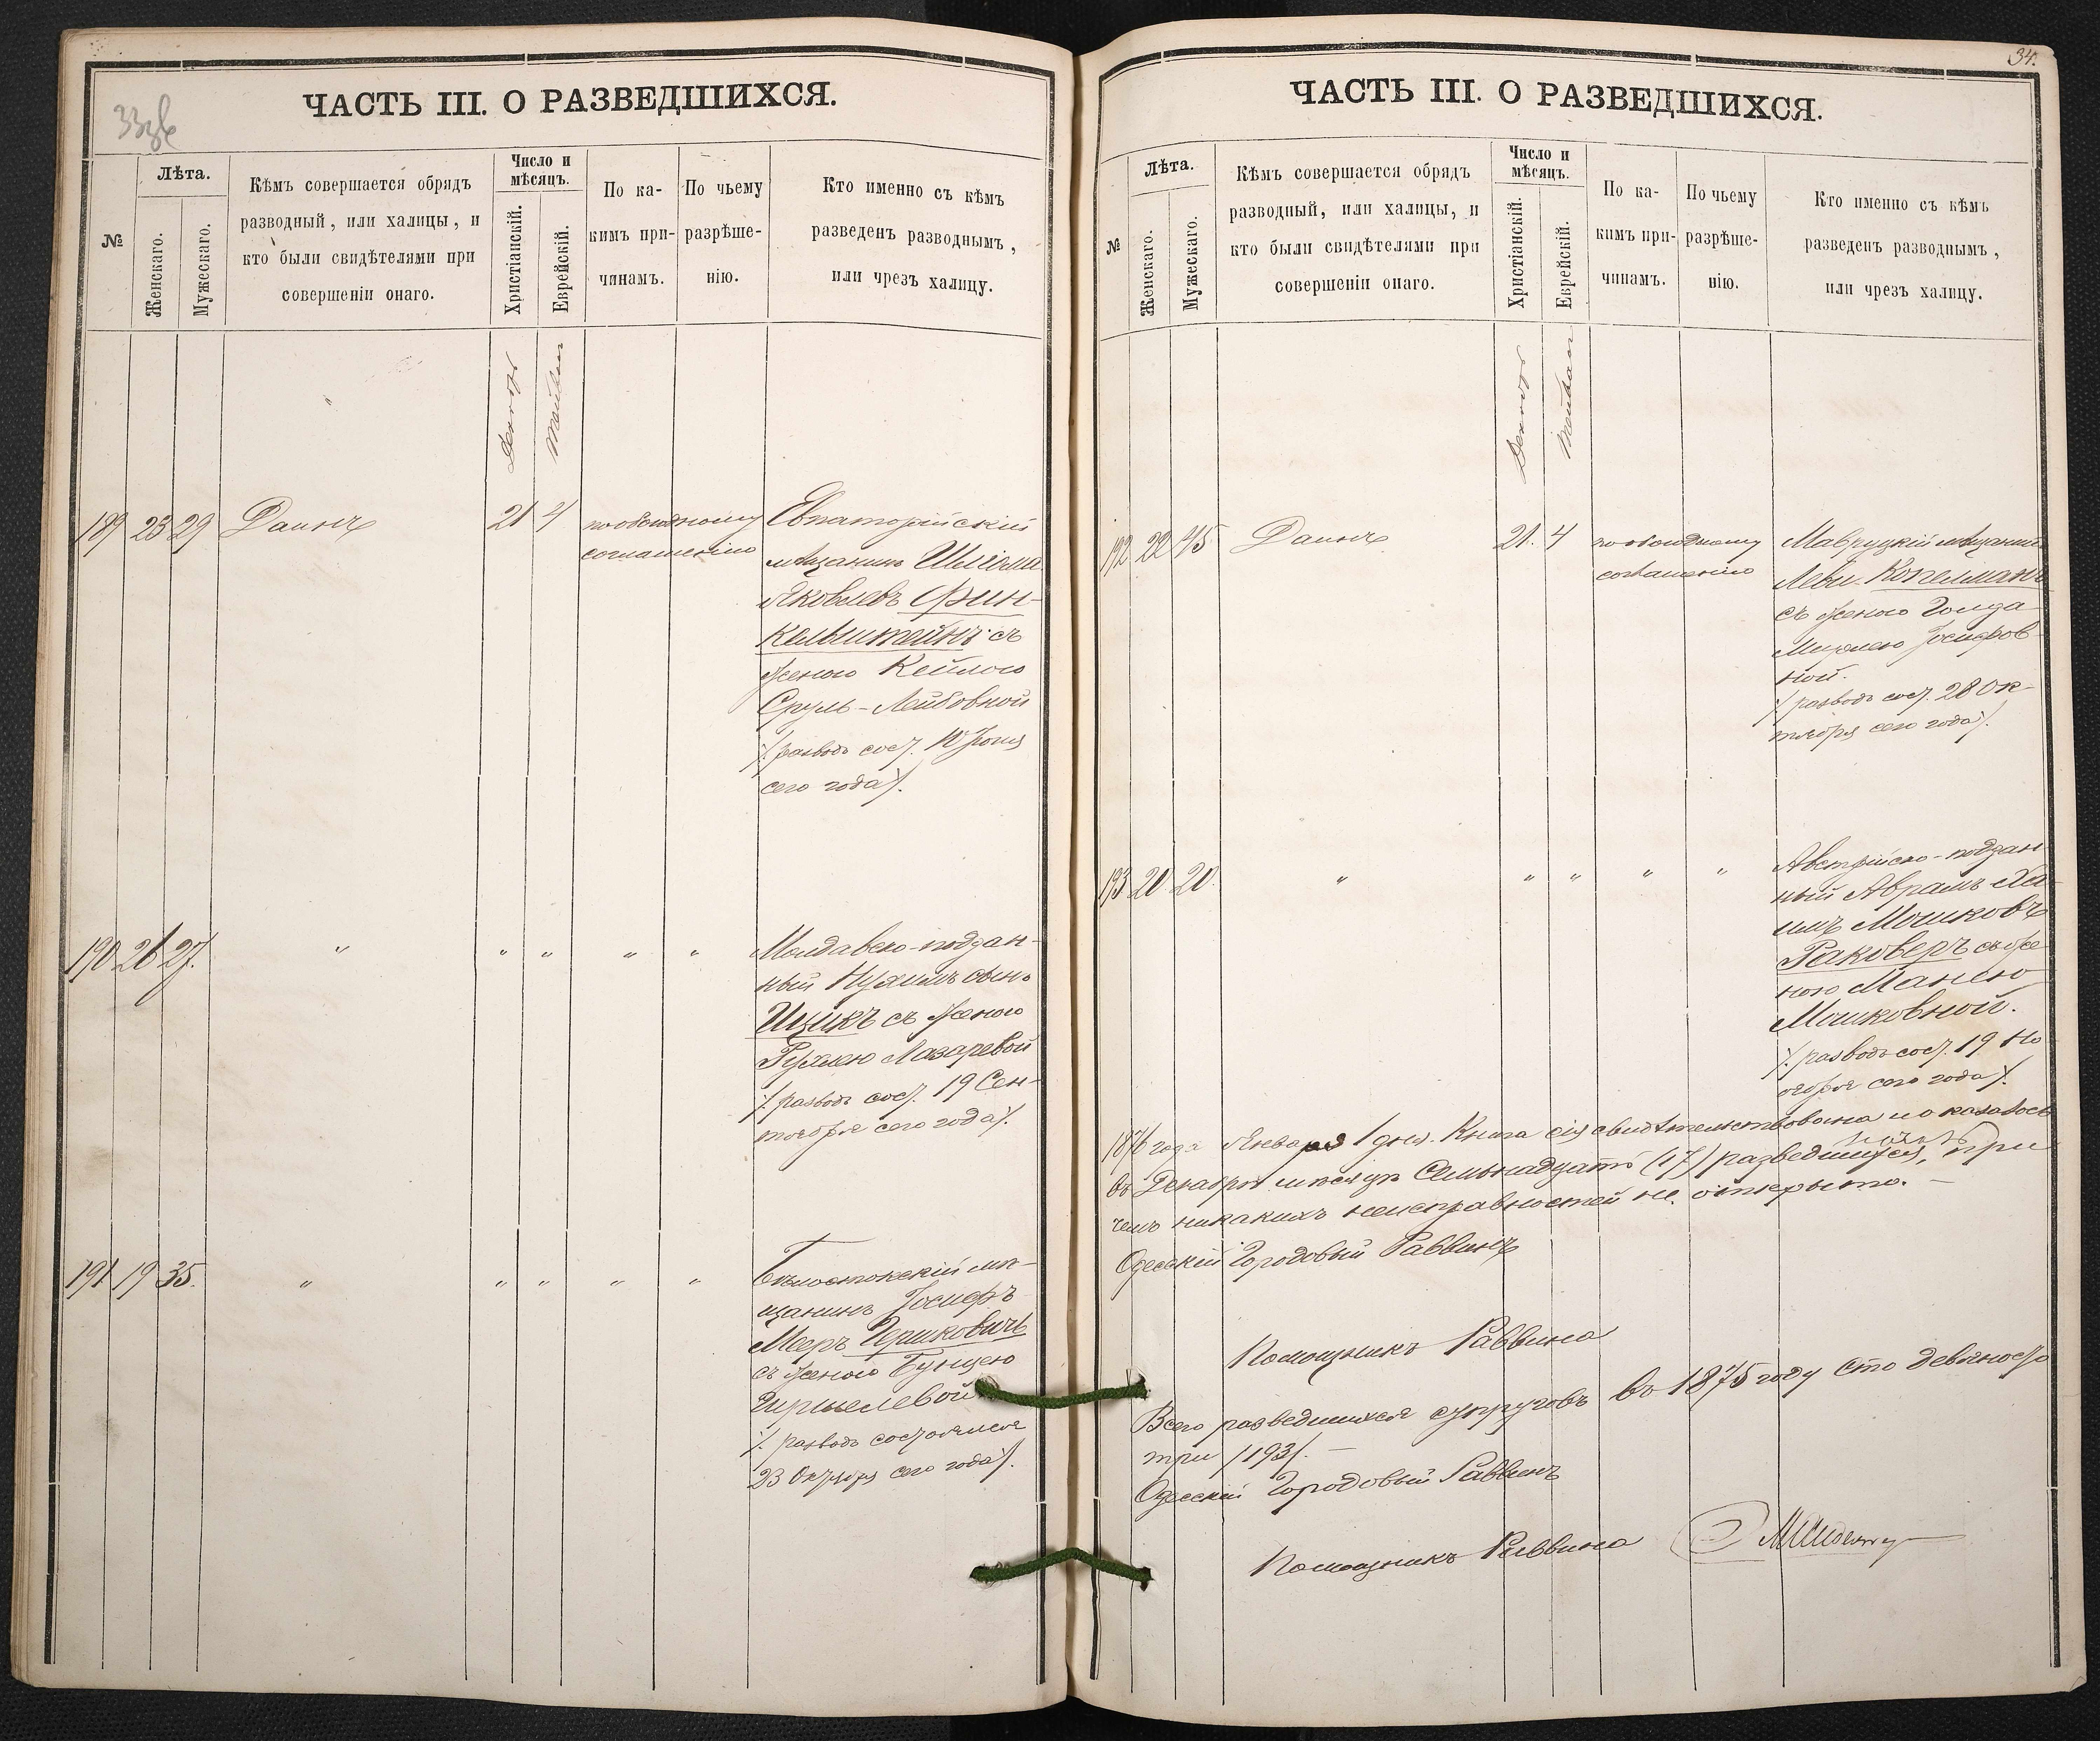 33зв
ЧАСТЬ III. О РАЗВЕДШИХСЯ.
№
Лѣта.
Женскаго.
Мужескаго.
Кѣмъ совершается обрядъ
разводный, или халицы, и
кто были свидѣтелями при
совершеніи онаго.
Число и
мѣсяцъ.
Христіанскій.
Еврейскій.
По ка-
кимъ при-
чинамъ.
По чьему
разрѣше-
нію.
Кто именно съ кѣмъ
разведенъ разводнымъ,
или чрезъ халицу.
189 23 29 Даинъ 21 4 по обоюдному
согласію
Евпаторійскій
мѣщанинъ Шлёма
Яковлевъ Фин-
кельштейнъ съ
женою Кейлою
Сруль-Лейбовной
/: разводъ сост. 10 Іюня
сего года :/.
190 26 27. " " " " "
Молдавско-поддан-
ный Нухимъ сынъ
Ицикъ съ женою
Рухлею Лазаревой
/: разводъ сост. 19 Сен-
тября сего года :/.
191 19 35. " " " " "
Бѣлостокскій мѣ-
щанинъ Іосифъ
Мееръ Гершковичъ
съ женою Бунцею
Гиршелевой
/: разводъ состоялся
23 Октября сего года :/.
34.
ЧАСТЬ III. О РАЗВЕДШИХСЯ.
№
Лѣта.
Женскаго.
Мужескаго.
Кѣмъ совершается обрядъ
разводный, или халицы, и
кто были свидѣтелями при
совершеніи онаго.
Число и
мѣсяцъ.
Христіанскій.
Еврейскій.
По ка-
кимъ при-
чинамъ.
По чьему
разрѣше-
нію.
Кто именно съ кѣмъ
разведенъ разводнымъ,
или чрезъ халицу.
192 22 45 Даинъ 21. 4 по обоюдному
согласію
мѣщанинъ
Леви Копелманъ
съ женою Голда
Мирлею Іосифов-
ной.
/: разводъ сост. 28 Ок-
тября сего года :/.
193 20 20. " " " " "
Австрійско-поддан-
ный Абрамъ Ха-
имъ Мошковъ
Раковеръ съ же
ною Манею
Мошковной.
/: разводъ сост. 19 Но
ября сего года :/.
1876 года Января 1 дня. Книга сія свидѣтельствована и оказалось
въ Декабрѣ мѣсяцѣ Семьнадцать (17) разведшихся, при
чемъ никакихъ неисправностей не открыто. —
Одесскій Городовый Раввинъ
Помощникъ Раввина
Всего разведшихся супруговъ въ 1875 году сто девяносто
три /193/. —
Одесскій Городовый Раввинъ
Помощникъ Раввина